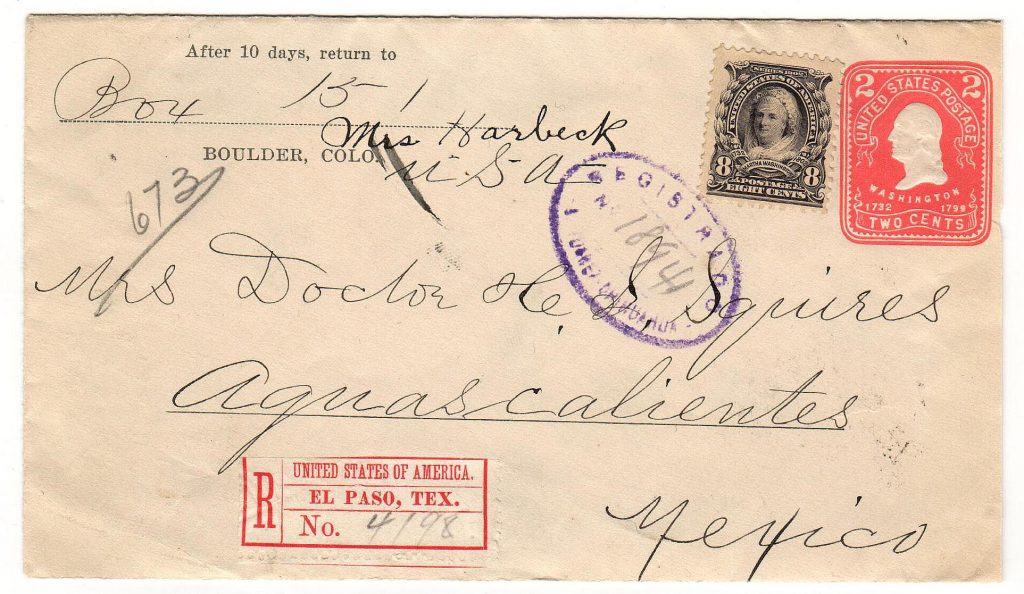 After 10 days, return to
Box 15-1
Mrs Harbeck
BOULDER, COLO.
U S A
673
SERIES 1902
UNITED STATES OF AMERICA
MARTHA WASHINGTON
8 8
POSTAGE
EIGHT CENTS
2 2
UNITED STATES POSTAGE
WASHINGTON
1732 1799
TWO CENTS
REGISTRADO
No. 1894
JUAREZ-CHIHUAHUA-
Mrs Doctor H. S. Squires
Aguascalientes
Mexico
R
UNITED STATES OF AMERICA.
EL PASO, TEX.
No. 4198